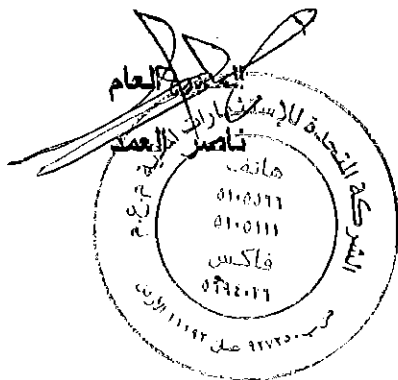 المدير العام
ناصر العمد
الشركة المتحدة للإستثمارات المالية م.ع.م
هاتف
٥١٠٥٥٦٦
٥١٠٥١١١
فاكس
٥٦٩٤٠٢٦
ص.ب ٩٢٧٢٥٠ عمان ١١١٩٢ الأردن